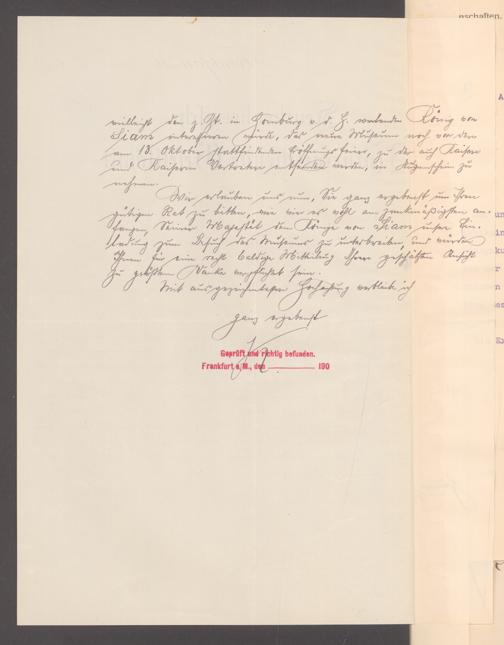 vielleicht den z. Zt. in Homburg v. d. H. weilenden König von
Siam interessieren wird, das neue Museum noch vor der
am 13. Oktober stattfindenden Eröffnungsfeier, zu der auch Kaiser
und Kaiserin Vertreter entsenden werden, in Augenschein zu
nehmen.
Wir erlauben uns nun, Sie ganz ergebenst um Ihren
gütigen Rat zu bitten, wie wir es wohl am zweckmäßigsten an-
fangen, Seiner Majestät dem Könige von Siam unsere Ein-
ladung zum Besuch des Museums zu unterbreiten, und werden
Ihnen für eine recht baldige Mitteilung Ihrer geschätzten Ansicht
zu größtem Danke verpflichtet sein.
Mit ausgezeichneter Hochachtung verbleibe ich
ganz ergebenst
Geprüft und richtig befunden.
Frankfurt a/M., den 190
nschaften.
A
un
in
ku
r
n
es